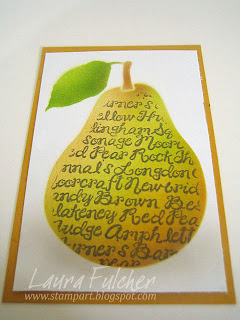 urners
ellow Hu
lingham Sq
sonage Moor
d Pear Rock Th
nnals Longdon
oorcraft Newbrid
andy Brown Bes
lakeney Red Pea
udge Amphlett
urners Bar
Laura Fulcher
www.stampart.blogspot.com